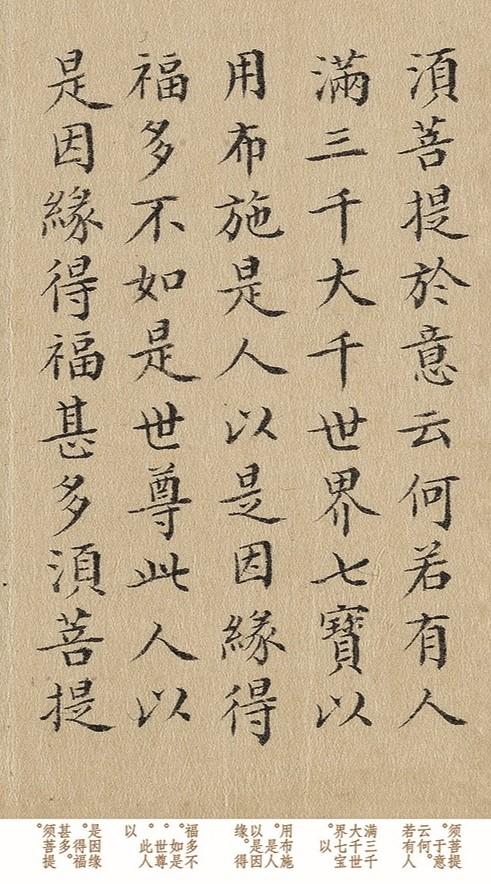 湏菩提於意云何若有人
滿三千大千世界七寶以
用布施是人以是因緣得
福多不如是世尊此人以
是因緣得福甚多湏菩提
须菩提
。于意
云何。
若有人
满三千
大千世
界七宝
。以
用布施
。是人
以是因
缘。得
福多不
。如是
。世尊
。此人
以
是因缘
。得福
甚多。
须菩提
。